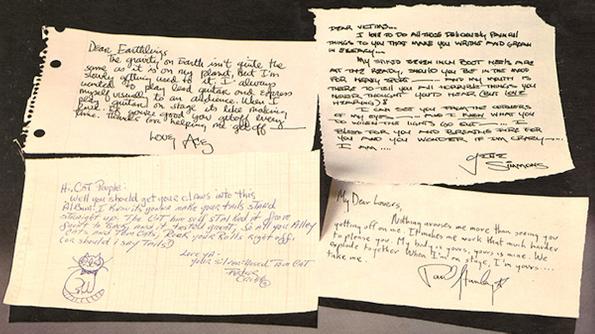 Dear Earthlings
The gravity on Earth isn't quite the
same as it is on my planet, but I'm
slowly getting used to it. I always
wanted to play lead guitar and express
myself visually to an audience. When I
play guitar on stage its like making
love if you're good you get off every
time. Thanks for helping me get off
Love, Ace
DEAR VICTIMS...
I LOVE TO DO ALL THOSE DELICIOUSLY PAINFUL
THINGS TO YOU THAT MAKE YOU WRITHE AND GROAN
IN ECSTACY...
MY SPIKED SEVEN INCH BOOT HEELS ARE
AT THE READY, SHOULD YOU BE IN THE MOOD
FOR HEAVY SPORT... AND MY MOUTH IS
THERE TO TELL YOU ALL HORRIBLE THINGS YOU
NEVER THOUGHT YOU'D HEAR (BUT LOVE
HEARING)!
I CAN SEE YOU FROM THE CORNERS
OF MY EYES... AND I KNEW WHAT YOU
DO WHEN THE LIGHTS GO OUT... I
BLEED FOR YOU AND BREATHE FIRE FOR
YOU AND YOU WONDER IF I'M CRAZY...
I AM....
GENE
SIMMONS
Hi, CAT People:
Well you should get your claws into this
Album! I know it's gonna make your tails stand
straight up. The CAT himself started it
and it tasted great, so all you Alley
Cats and Tom Cats, Rock your Rolls right off.
(or should I say Tails!)
Love ya-
your silver-nosed Tom CAT
Peter
Criss
My Dear Lovers,
Nothing arouses me more than seeing you
getting off on me. It makes me work that much harder
to please you. My body is yours, yours is mine. We
explode together. When I'm on stage, I'm yours....
take me.
Paul Stanley